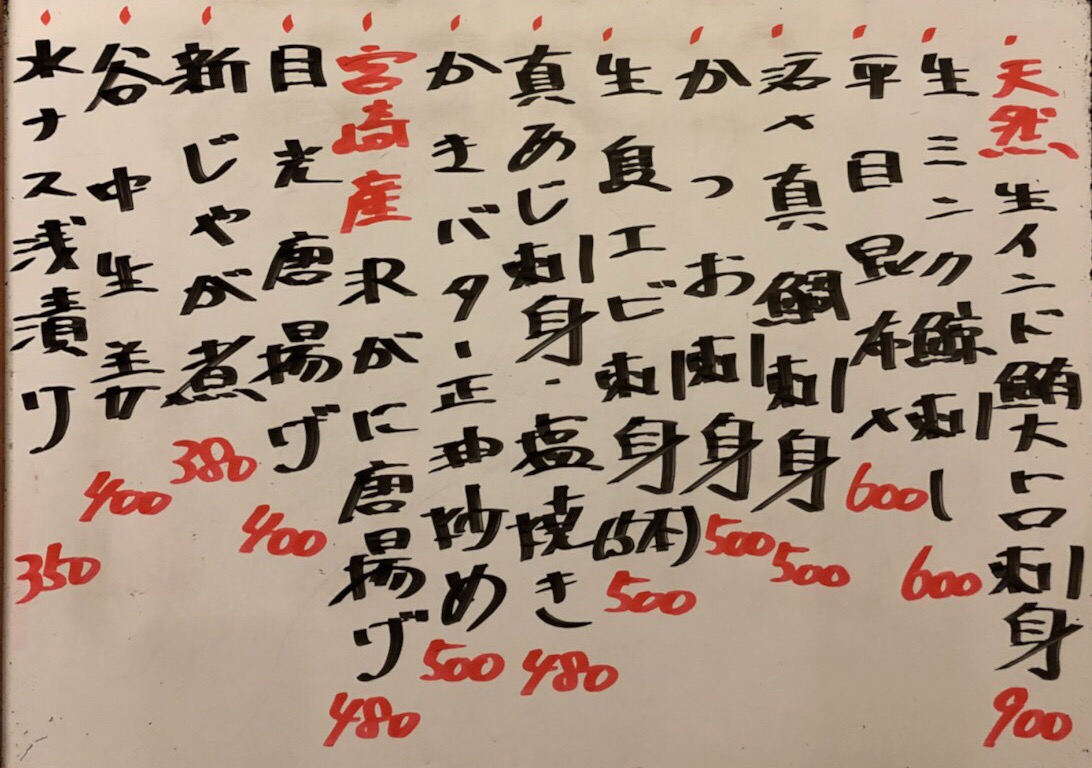 天然生インド鮪大トロ刺身 900
生ミンク鯨刺し 600
平目昆布〆 600
活〆真鯛刺身 500
かつお刺身 500
生良エビ刺身(5本) 500
真あじ刺身・塩焼き 480
かきバター正油炒め 500
宮崎産沢がに唐揚げ 480
目光唐揚げ 400
新じゃが煮 380
谷中生姜 400
水ナス浅漬り 350